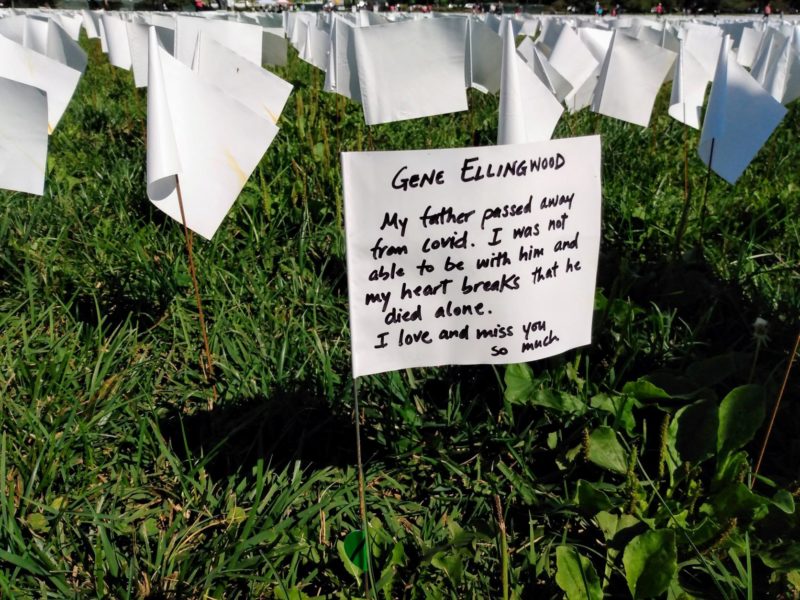 GENE ELLINGWOOD
My father passed away
from covid. I was not
able to be with him and
my heart breaks that he
died alone.
I love and miss you
so much